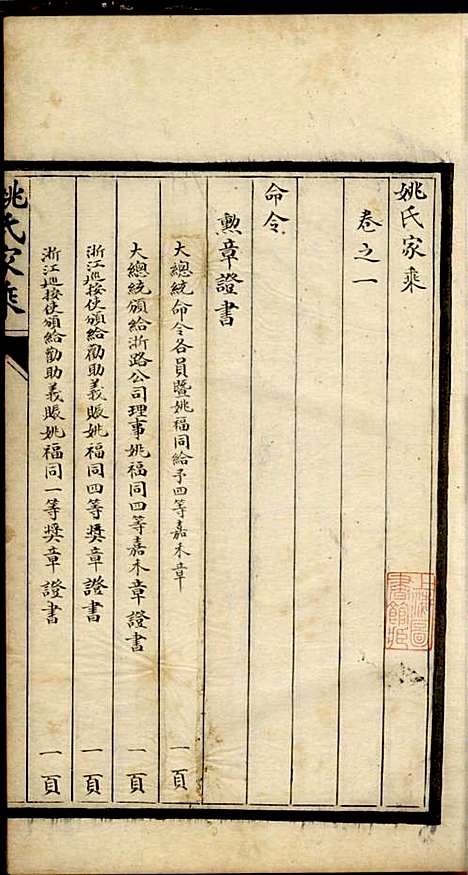 姚氏家乘
卷之一
命令
勲章證書
大總統命令各員暨姚福同給予四等嘉禾章 一頁
大總統頒給浙路公司理事姚福同四等嘉禾章證書 一頁
浙江巡按使頒給勸助義賬姚福同四等獎章證書 一頁
浙江巡按使頒給勸助義賬姚福同一等獎章證書 一頁
姚氏家乘
上海圖書館藏